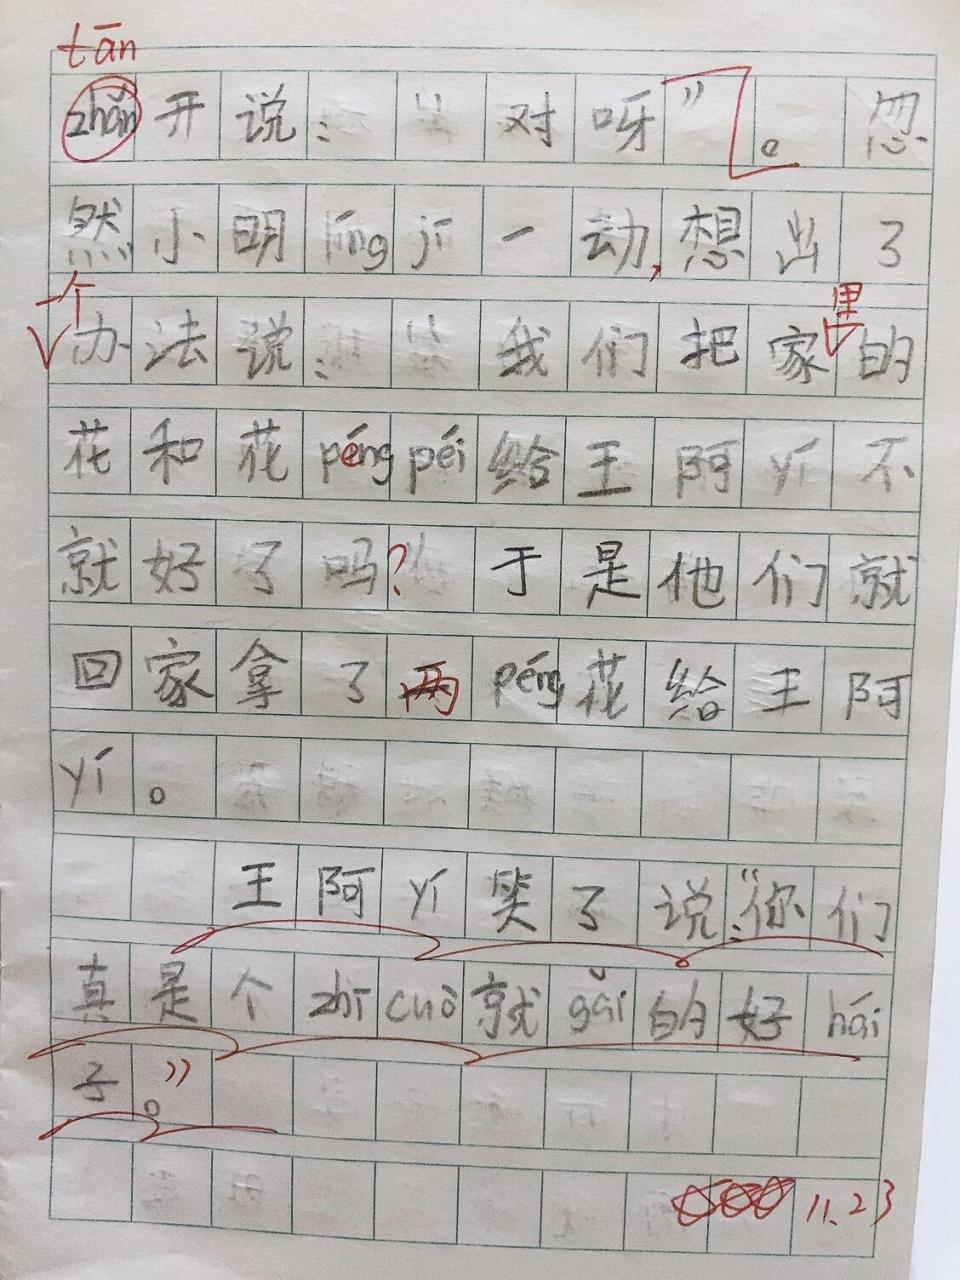 tān
zhǎn开说：对呀”。忽
然小明língjī一动，想出了
一个
里
办法说：我们把家的
花和花péngpéi给王阿yí不
就好了吗？于是他们就
回家拿了两péng花给王阿
yí。
王阿yí笑了说：“你们
真是个zhīcuò就gǎi的好hái
子。”
11.23